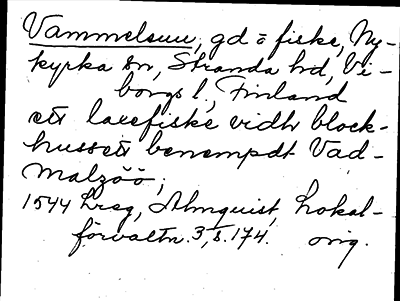 Vammelsuu, gd o fiske, Ny-
kyrka sn, Stranda hd, Vi-
borgs l., Finland
ett laxefiske vidh block-
hussett benempdt Vad-
malzöö;
1544 Lreg, Almquist, Lokal-
förvaltn. 3, s. 174. orig.